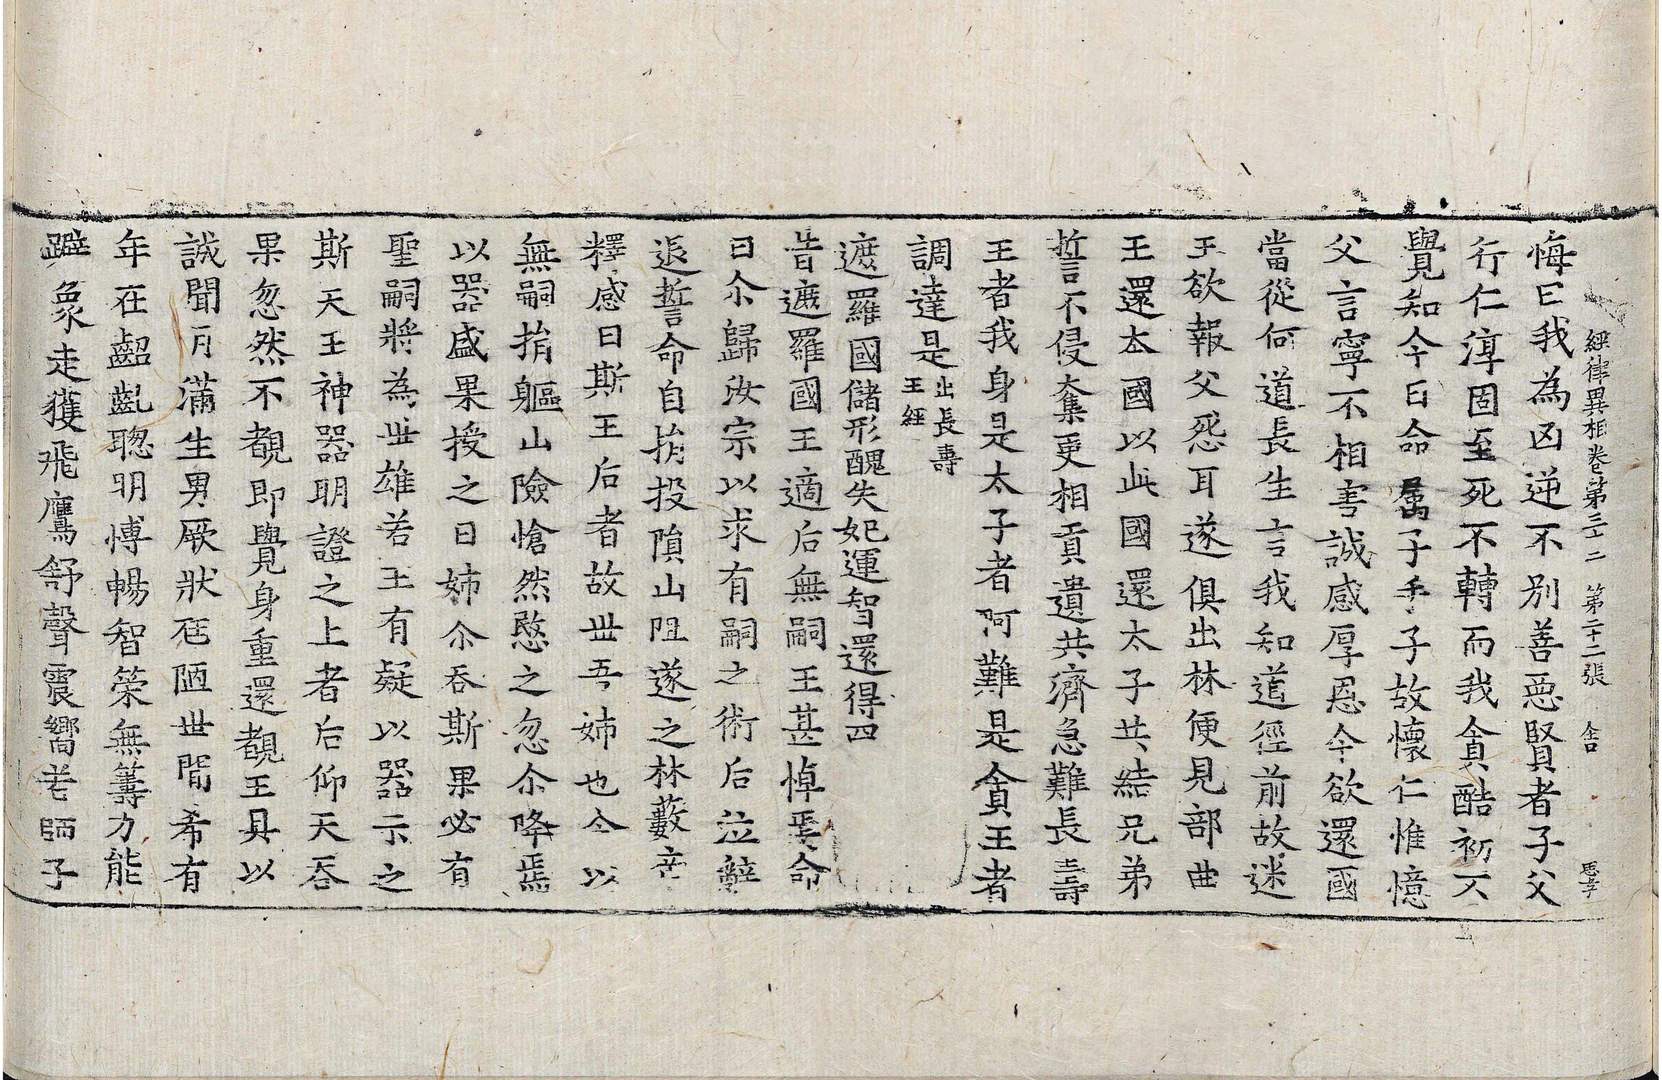 經律異相卷第三十二 第二十二張 禽
悔曰我為凶逆不別善惡賢者子父
行仁淳固至死不轉而我貪酷初不
覺知今日命屬子手子故懷仁惟憶
父言寧不相害誠感厚恩今欲還國
當從何道長生言我知道徑前故迷
王欲報父怨耳遂俱出林便見部曲
王還本國以此國還太子共結兄弟
誓言不侵奪更相貢遺共濟急難長壽
王者我身是太子者阿難是貪王者
調達是出長壽王經
遮羅國儲形醜失妃運智還得四
昔遮羅國王適后無嗣王甚悼焉命
曰尒歸汝宗以求有嗣之術后泣辭
退誓命自捐投隕山阻遂之林藪帝
釋感曰斯王后者故世吾姊也今以
無嗣捐軀山險愴然愍之忽尒降焉
以器盛果授之曰姊尒吞斯果必有
聖嗣將為世雄若王有疑以器示之
斯天王神器明證之上者后仰天吞
果忽然不覩即覺身重還覩王具以
誠聞月滿生男厥狀尫陋世閒希有
年在齠齓聦明博暢智策無籌力能
躃象走獲飛鷹舒聲震嚮若師子